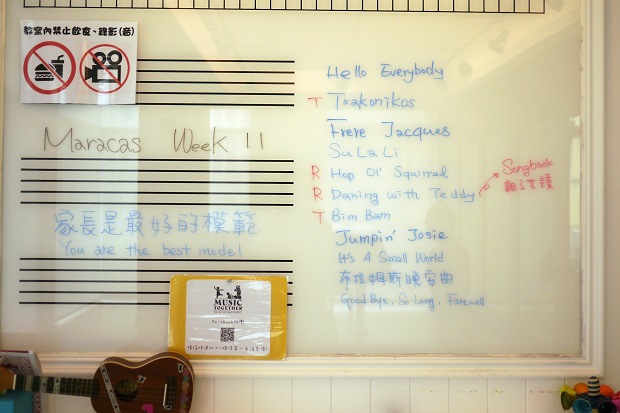 教室內禁止飲食、錄影(音)
Maracas Week 11
家長是最好的模範
You are the best model
MUSIC
TOGETHER
Hello Everybody
T Tsakonikos
Frere Jacques
Su La Li
R Hop Ol' Squirrel
R Daning with Teddy
Songbook
T Bim Bam
Jumpin' Josie
It's A Small World
布拉姆斯晚安曲
Good Bye, So Long, Farewell